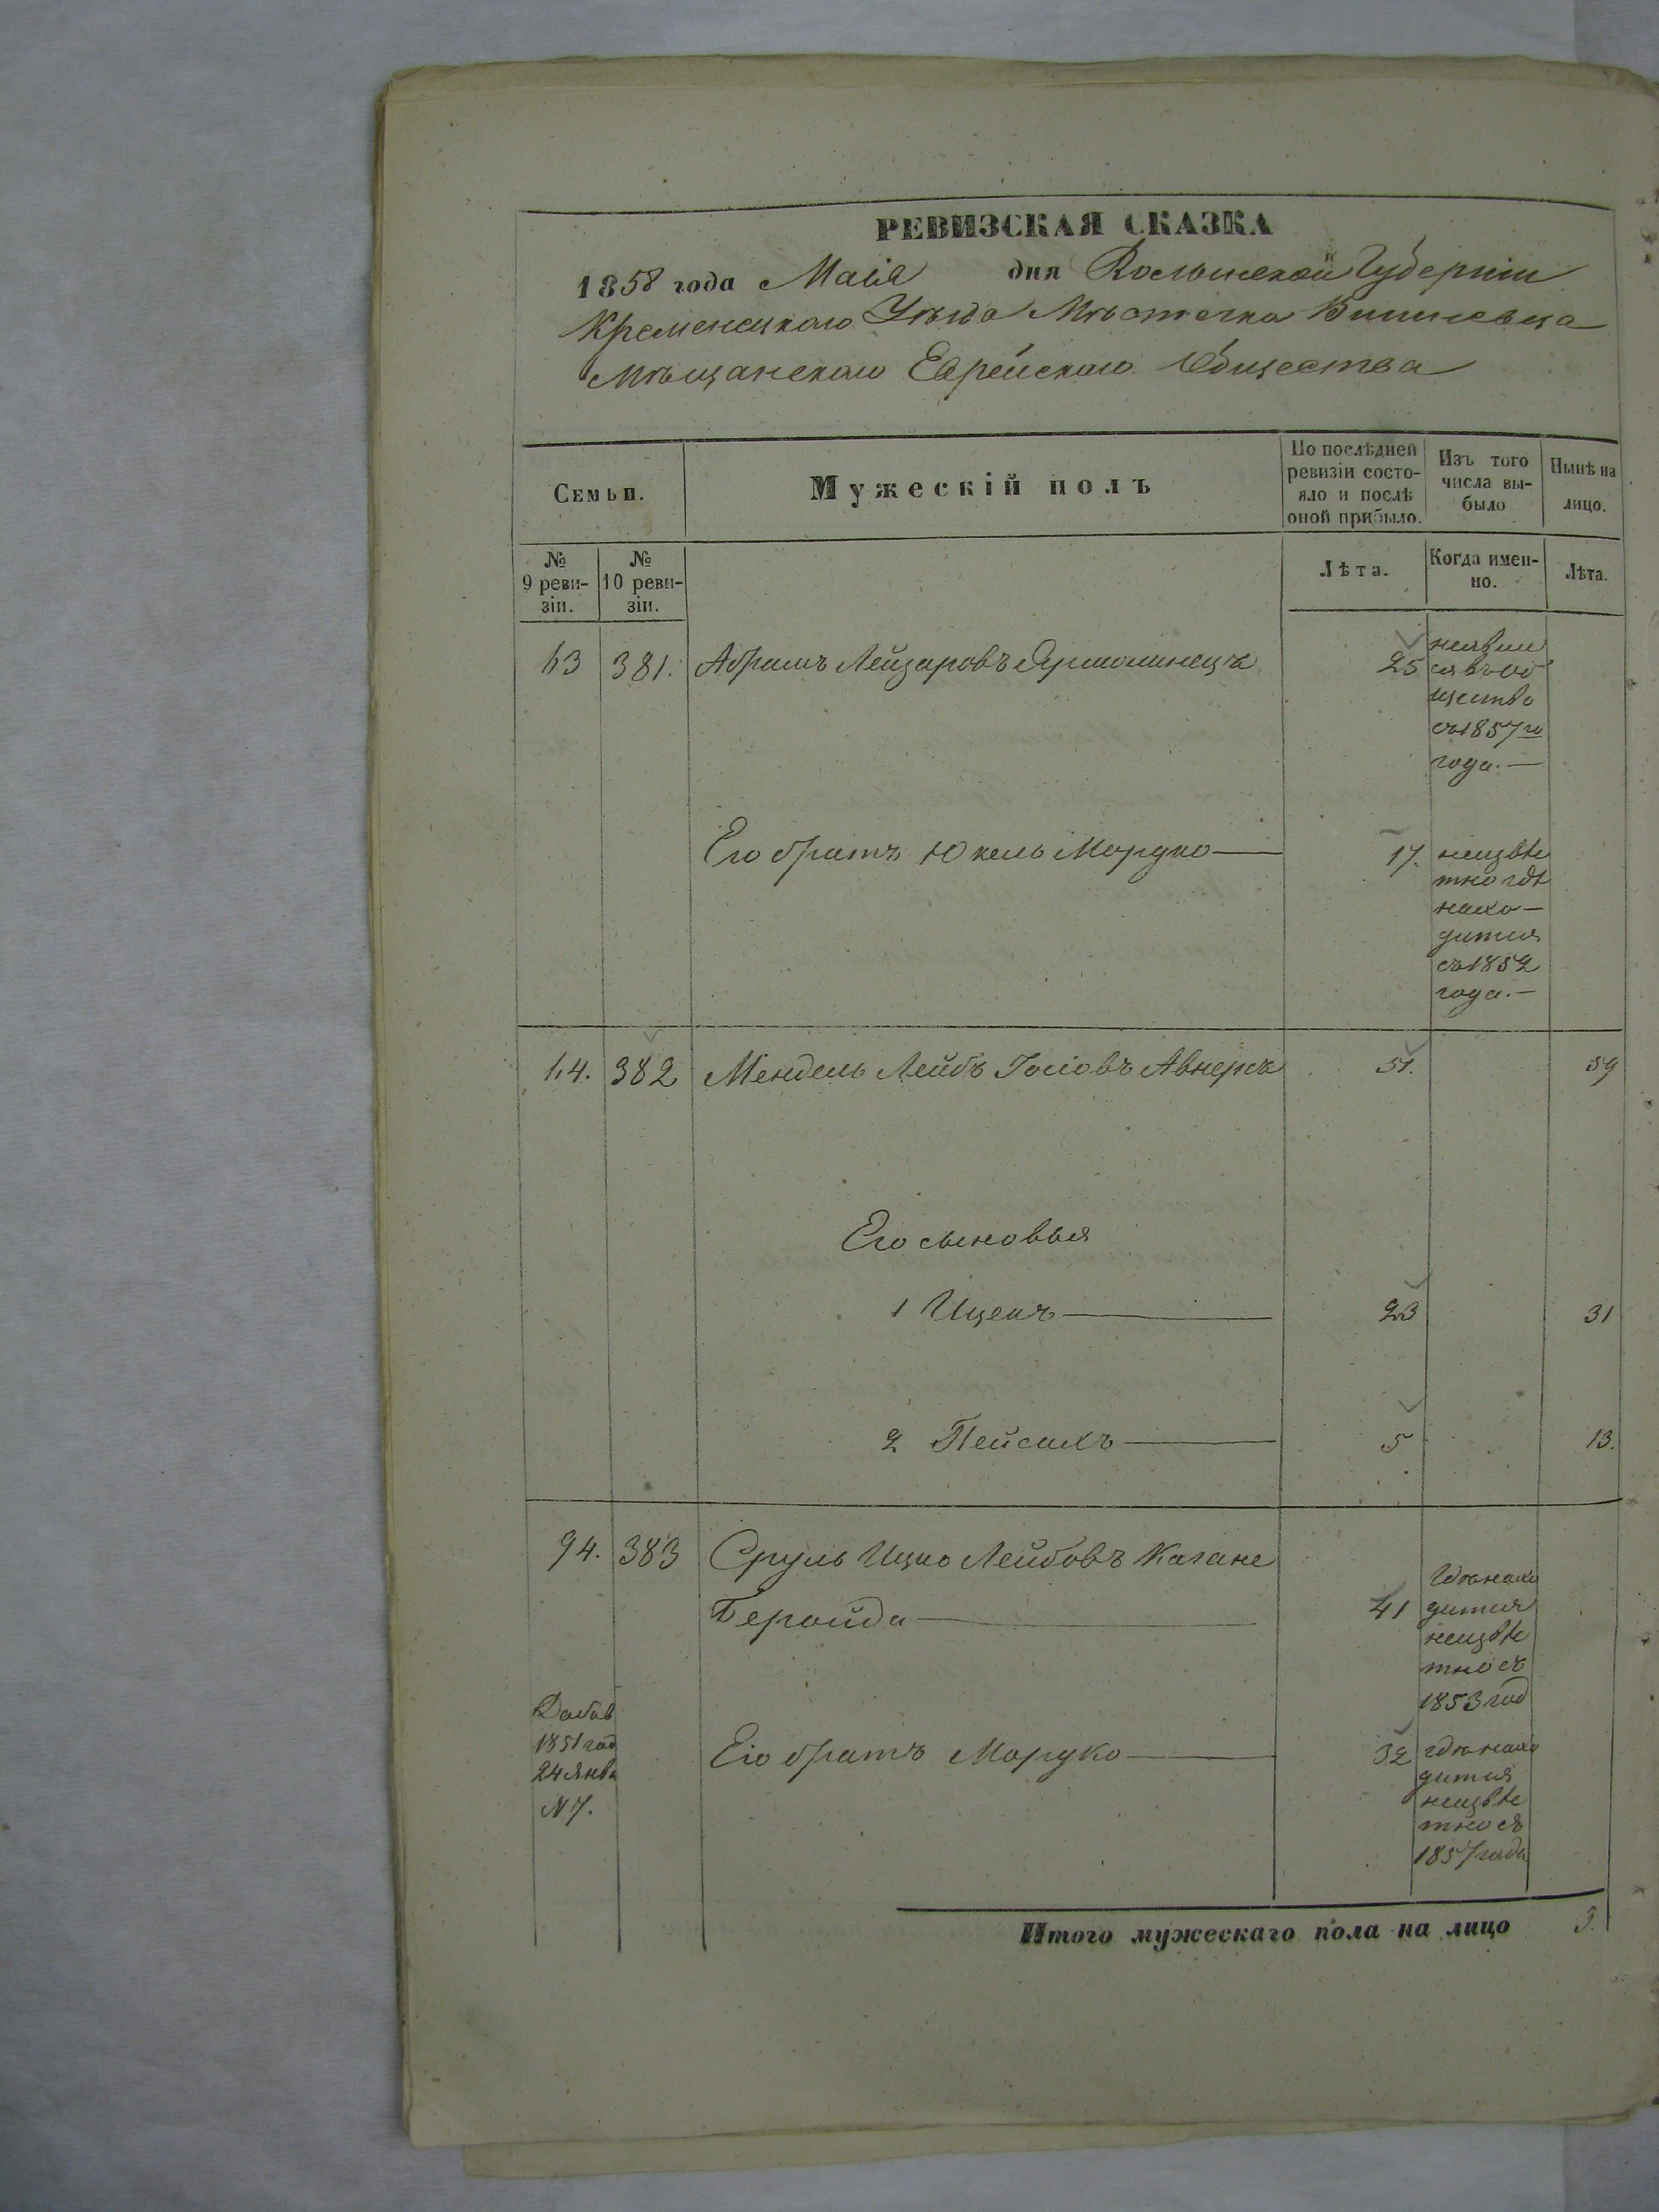 РЕВИЗСКАЯ СКАЗКА
1858 года Маія дня Волынской Губерніи
Кременецкаго Уѣзда Мѣстечка Вишневца
Мѣщанскаго Еврейскаго Общества
Семьи.
Мужескій полъ
По послѣдней ревизіи состо-
яло и послѣ
оной прибыло.
Изъ того
числа вы-
было
Нынѣ на
лицо.
№
9 реви-
зіи.
№
10 реви-
зіи.
Лѣта.
Когда имен-
но.
Лѣта.
63 381. Абрамъ Лейзаровъ Ярмолинецъ 25
неявил
ся въ об
щество
съ 1857го
года.—
Его братъ Юкель Мордко — 17.
неизвѣс
тно гдѣ
нахо—
дится
съ 1852
года.—
64. 382 Мендель Лейбъ Іосіовъ Авнеръ 51. 59
Его сыновья
1 Ицекъ — 23 31
2 Пейсахъ — 5 13.
94. 383 Сруль Ицко Лейбовъ Кагане
Беройда — 41
Гдѣ нахо
дится
неизвѣс
тно съ
1853 год
Добав
1851 год
24 Янва
№ 7.
Его братъ Мордко — 32
гдѣ нахо
дится
неизвѣс
тно съ
1857 года
Итого мужескаго пола на лицо 3.